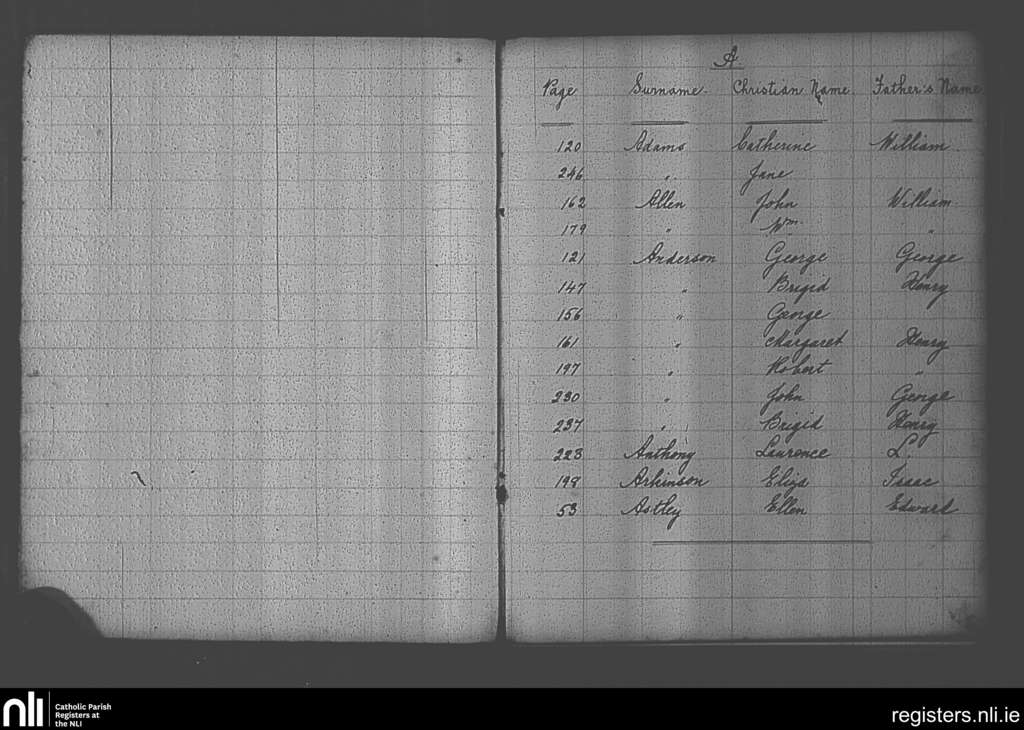 A.
Page Surname. Christian Name. Father's Name
120 Adams Catherine William.
246 " Jane
162 Allen John William.
179 " Wm. "
121 Anderson George George
147 " Brigid Henry
156 " George
161 " Margaret Henry
197 " Robert "
230 " John George
237 " Brigid Henry
223 Anthony Laurence L.
198 Arkinson Eliza Isaac
53 Astley Ellen Edward
nli Catholic Parish
Registers at
the NLI
registers.nli.ie